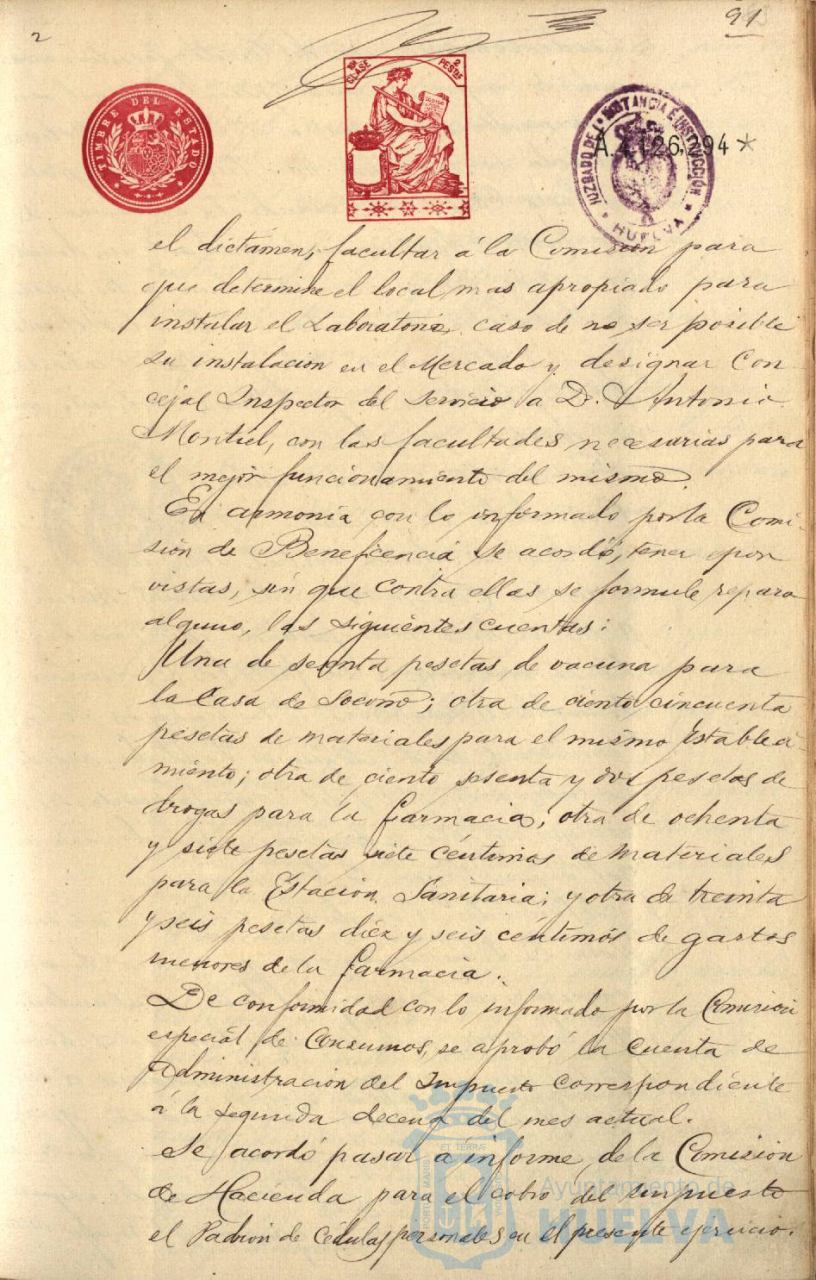 2
91
TIMBRE DEL ESTADO
10ª CLASE
2 PESETAS
JUZGADO DE 1ª INSTANCIA É INSTRUCCIÓN
* HUELVA *
A.4.126,294*
el dictámen, facultar á la Comisión para
que determine el local mas apropiado para
instalar el Laboratorio, caso de no ser posible
su instalacion en el Mercado y designar Con
cejal Inspector del servicio a D. Antonio
Montiel, con las facultades necesarias para
el mejor funcionamiento del mismo.
En armonía con lo informado por la Comi-
sión de Beneficencia se acordó, tener
vistas, sin que contra ellas se formule reparo
alguno, las siguientes cuentas:
Una de pesetas de vacuna para
la Casa de Socorro; otra de ciento cincuenta
pesetas de materiales para el mismo Estableci-
miento; otra de ciento sesenta y dos pesetas de
drogas para la Farmacia; otra de ochenta
y siete pesetas siete céntimos de materiales
para la Estación Sanitaria; y otra de treinta
y seis pesetas diéz y seis céntimos de gastos
menores de la Farmacia.
De conformidad con lo informado por la Comisión
especial de Consumos, se aprobó la cuenta de
Administración del Impuesto correspondiente
á la segunda decena del mes actual.
Se acordó pasar á informe de la Comisión
de Hacienda para el cobro del impuesto
el Padrón de Cédulas personales en el presente ejercicio.
Ayuntamiento de
HUELVA